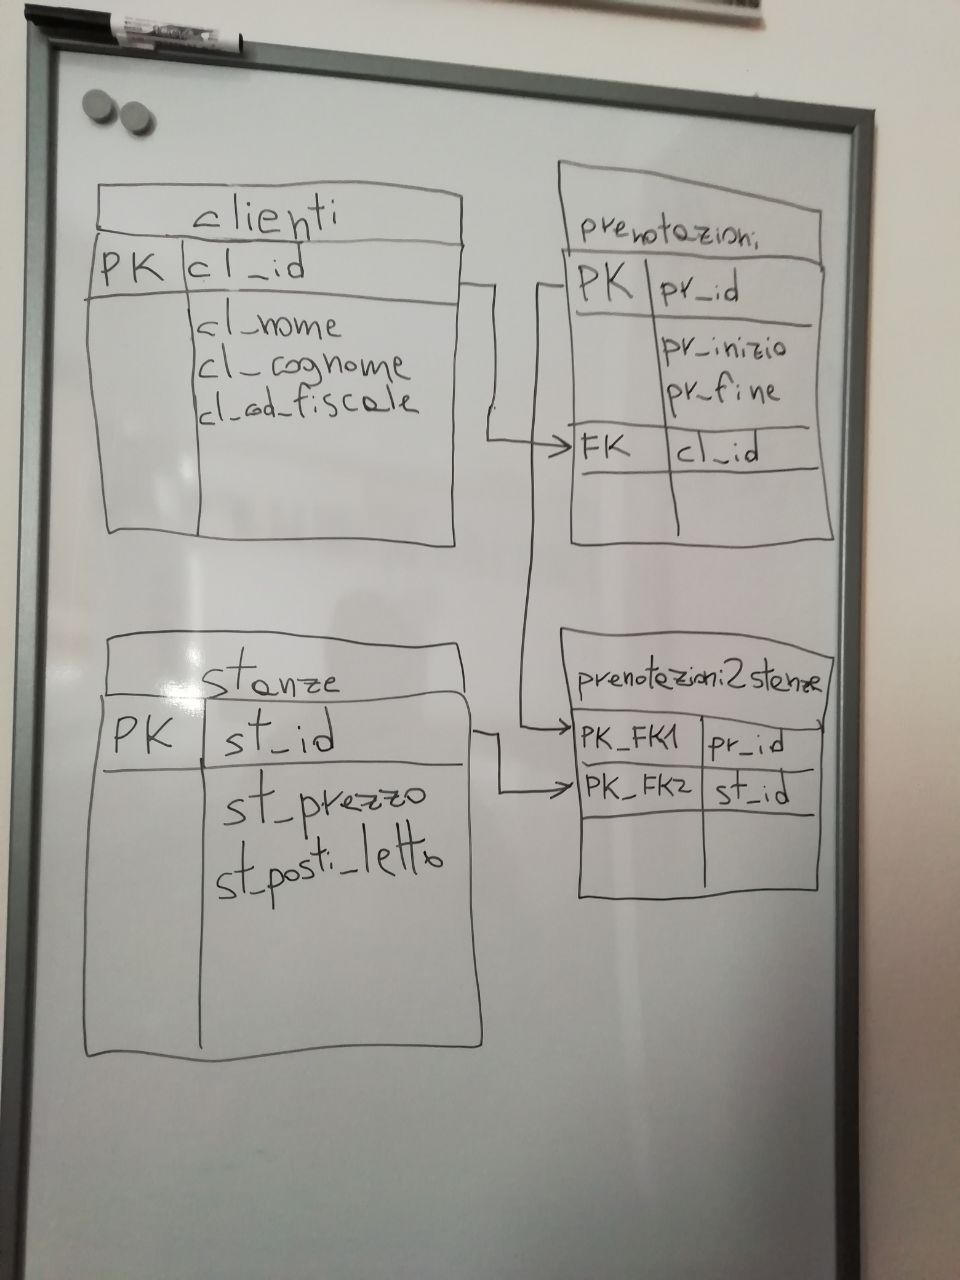 clienti
PK cl_id
cl_nome
cl_cognome
cl_cod_fiscale
prenotazioni
PK pr_id
pr_inizio
pr_fine
FK cl_id
stanze
PK st_id
st_prezzo
st_posti_letto
prenotazioni2stanze
PK_FK1 pr_id
PK_FK2 st_id